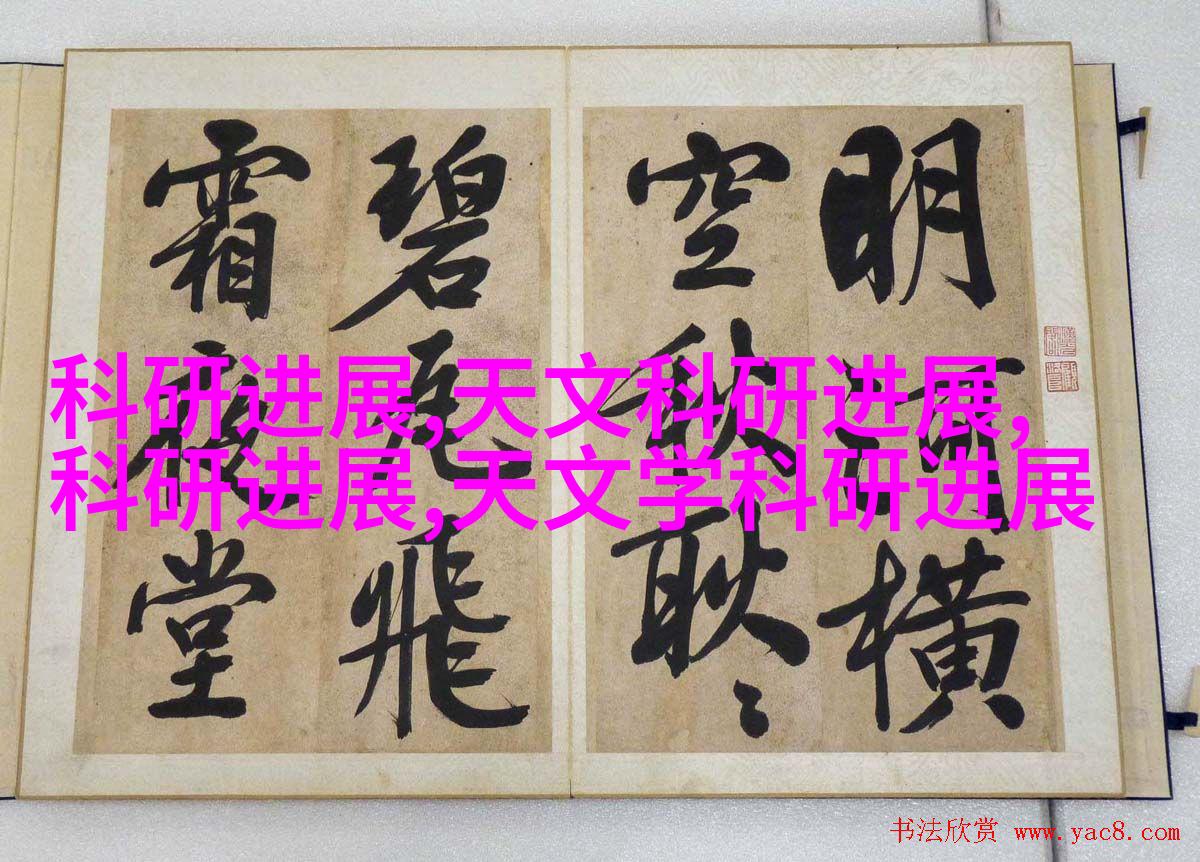 明河橫
空秋耿々
碧瓦飛
霜夜堂
科研进展,天文科研进展,
科研进展,天文学科研进展
书法欣赏 www.yac8.com